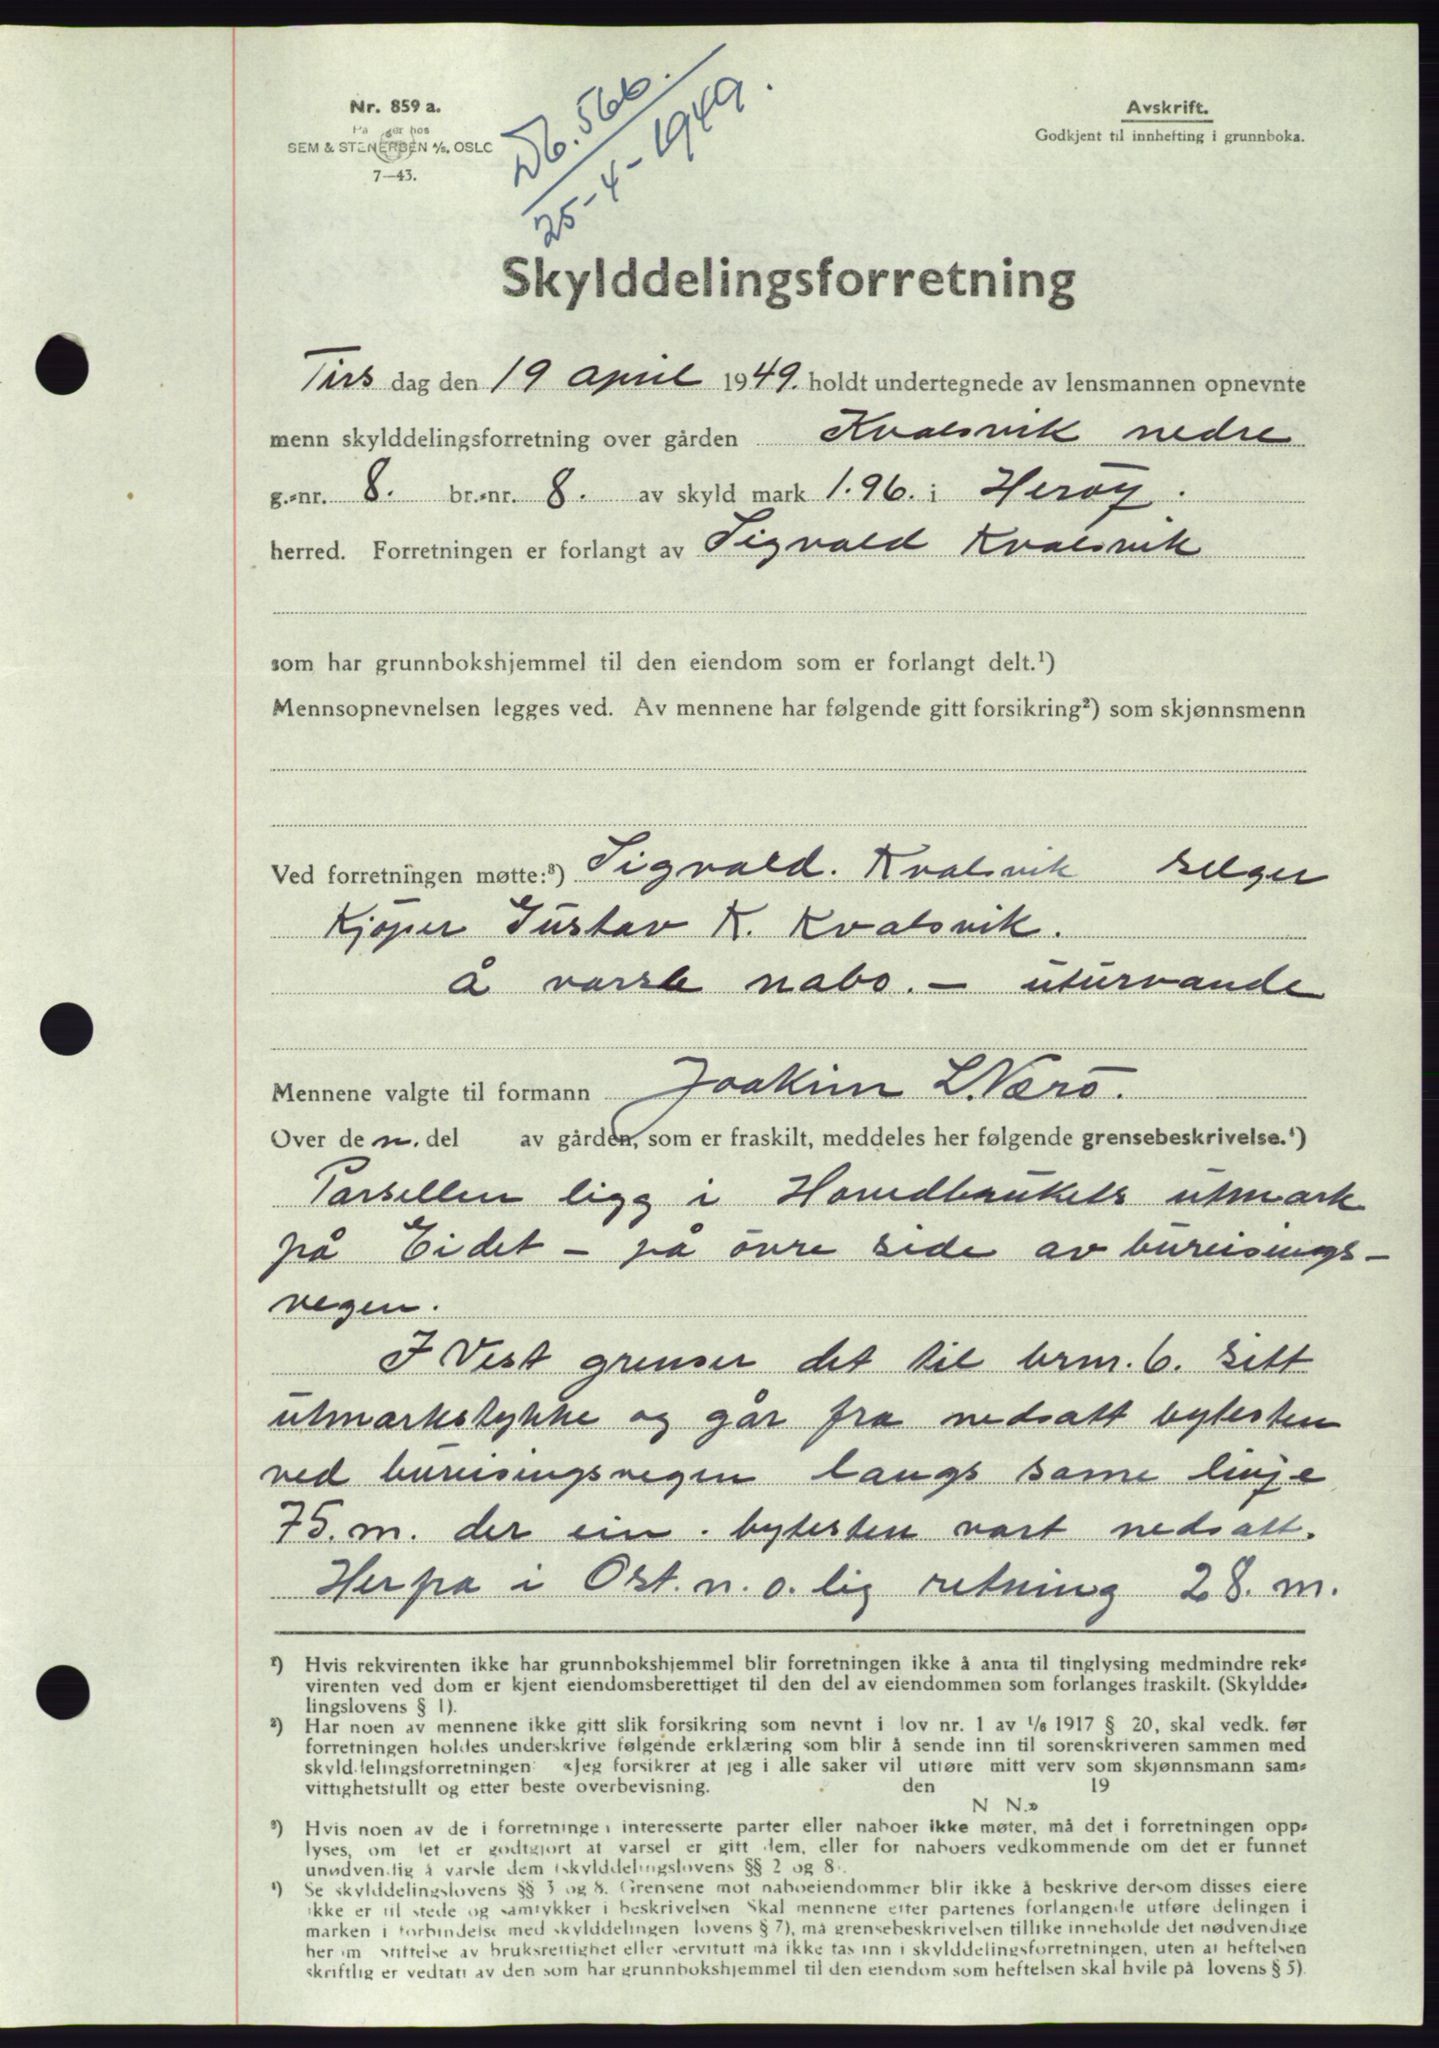 Nr. 859 a.
SEM & STENERSEN A/S, OSLO
7—43.
Db. 566.
25-4-1949.
Avskrift.
Godkjent til innhefting i grunnboka.
Skylddelingsforretning
Tirs dag den 19 april 1949. holdt undertegnede av lensmannen opnevnte
menn skylddelingsforretning over gården Kvalsvik nedre
g.-nr. 8. br.-nr. 8. av skyld mark 1.96. i Herøy.
herred. Forretningen er forlangt av Sigvald Kvalsvik
som har grunnbokshjemmel til den eiendom som er forlangt delt.¹)
Mennsopnevnelsen legges ved. Av mennene har følgende gitt forsikring²) som skjønnsmenn
Ved forretningen møtte:³) Sigvald. Kvalsvik selger
Kjöper Gustav K. Kvalsvik.
Å varsle nabo. - uturvande
Mennene valgte til formann Joakim L. Nærö.
Over den. del av gården, som er fraskilt, meddeles her følgende grensebeskrivelse.⁴)
Parsellen ligg i Hovedbrukets utmark
på Eidet - på övre side av bureisings-
vegen.
I Vest grenser det til brnr. 6. sitt
utmarkstykke og går fra nedsatt bytesten
ved bureisingsvegen langs same linje
75. m. der ein. bytesten vart nedsatt.
Herfra i Ost. n. o. lig retning 28. m.
¹) Hvis rekvirenten ikke har grunnbokshjemmel blir forretningen ikke å anta til tinglysing medmindre rek-
virenten ved dom er kjent eiendomsberettiget til den del av eiendommen som forlanges fraskilt. (Skyldde-
lingslovens § 1).
²) Har noen av mennene ikke gitt slik forsikring som nevnt i lov nr. 1 av 1/6 1917 § 20, skal vedk. før
forretningen holdes underskrive følgende erklæring som blir å sende inn til sorenskriveren sammen med
skylddelingsforretningen: «Jeg forsikrer at jeg i alle saker vil utføre mitt verv som skjønnsmann sam-
vittighetsfullt og etter beste overbevisning. den 19
N N.»
³) Hvis noen av de i forretningen interesserte parter eller naboer ikke møter, må det i forretningen opp-
lyses, om det er godtgjort at varsel er gitt dem, eller for naboers vedkommende om det er funnet
unødvendig å varsle dem (skylddelingslovens §§ 2 og 8).
⁴) Se skylddelingslovens §§ 3 og 8. Grensene mot naboeiendommer blir ikke å beskrive dersom disses eiere
ikke er til stede og samtykker i beskrivelsen Skal mennene etter partenes forlangende utføre delingen i
marken i forbindelse med skylddelingen lovens § 7), må grensebeskrivelsen tillike inneholde det nødvendige
her om stiftelse av bruksrettighet eller servitutt må ikke tas inn i skylddelingsforretningen, uten at heftelsen
skriftlig er vedtatt av den som har grunnbokshjemmel til den eiendom som heftelsen skal hvile på lovens § 5).